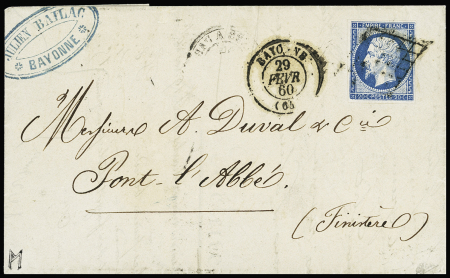 JULIEN BAILAC
BAYONNE
BAYONNE
29
FEVR
60
(64)
EMPIRE FRANC
20 C POSTES 20 C
Messieurs A. Duval & Cie
Pont-l'Abbé
(Finistère)